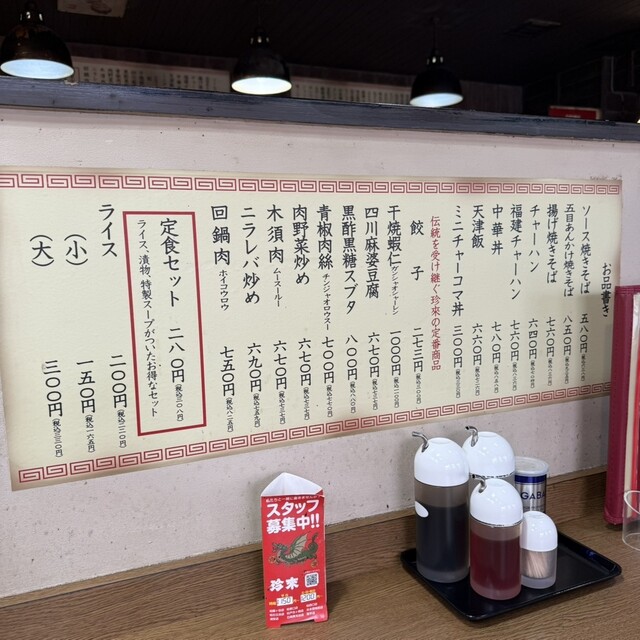 お品書き
ソース焼きそば 五八〇円
五目あんかけ焼きそば 八五〇円
揚げ焼きそば 七六〇円
チャーハン 六四〇円
福建チャーハン 七六〇円
中華丼 七八〇円
天津飯 六六〇円
ミニチャーコマ丼 三〇〇円
伝統を受け継ぐ珍來の定番商品
餃子 二七三円(税込三〇〇円)
干焼蝦仁 カンシャオシャーレン 一〇〇〇円(税込一一〇〇円)
四川麻婆豆腐 六七〇円(税込七三七円)
黒酢黒糖スブタ 八〇〇円(税込八八〇円)
青椒肉絲 チンジャオロウスー 七〇〇円(税込七七〇円)
肉野菜炒め 六七〇円(税込七三七円)
木須肉 ムースールー 六七〇円(税込七三七円)
ニラレバ炒め 六九〇円(税込七五九円)
回鍋肉 ホイコウロウ 七五〇円(税込八二五円)
定食セット 二八〇円(税込三〇八円)
ライス、漬物、特製スープがついたお得なセット
ライス 二〇〇円(税込二二〇円)
(小) 一五〇円(税込一六五円)
(大) 三〇〇円(税込三三〇円)
スタッフ
募集中!!
珍來
GABAN